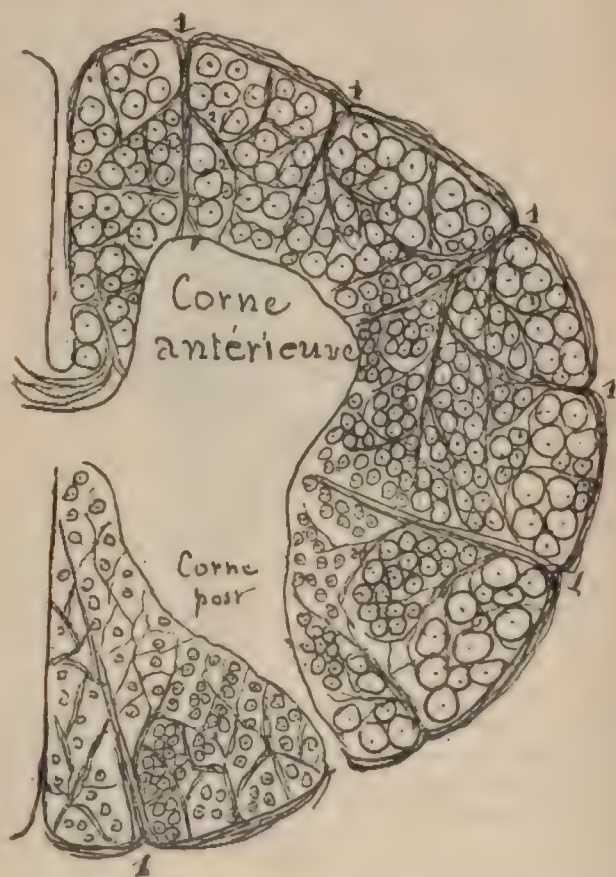 1
1
1
1
Corne
antérieure
1
Corne
post
1